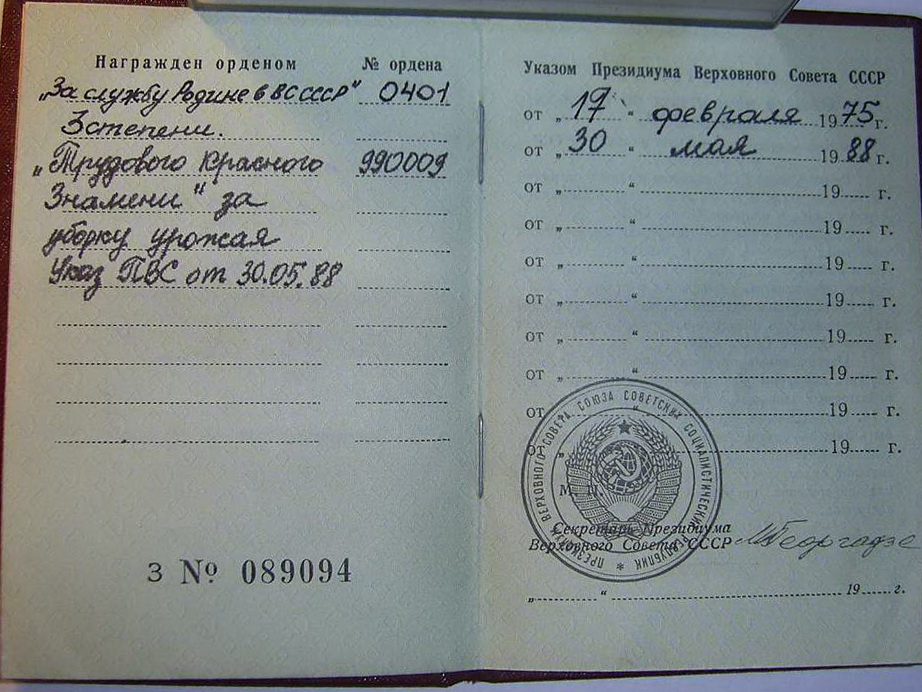 Награжден орденом № ордена
„За службу Родине в ВС СССР" 0401
3 степени.
„Трудового Красного 990009
Знамени" за
уборку урожая
Указ ПВС от 30.05.88
З № 089094
Указом Президиума Верховного Совета СССР
от „17" февраля 1975 г.
от „30" мая 1988 г.
от „ " 19 г.
от „ " 19 г.
от „ " 19 г.
от „ " 19 г.
от „ " 19 г.
от „ " 19 г.
от „ " 19 г.
от „ " 19 г.
ПРЕЗИДИУМ ВЕРХОВНОГО СОВЕТА СОЮЗА СОВЕТСКИХ СОЦИАЛИСТИЧЕСКИХ РЕСПУБЛИК *
М. П.
Секретарь Президиума
Верховного Совета СССР МГеоргадзе
„ " 19 г.